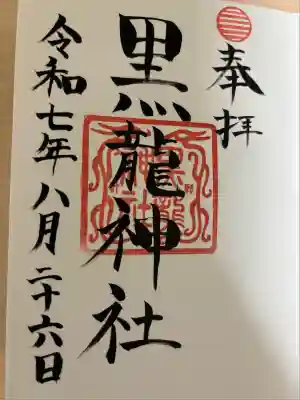 奉拝
黒龍神社
令和七年八月二十六日